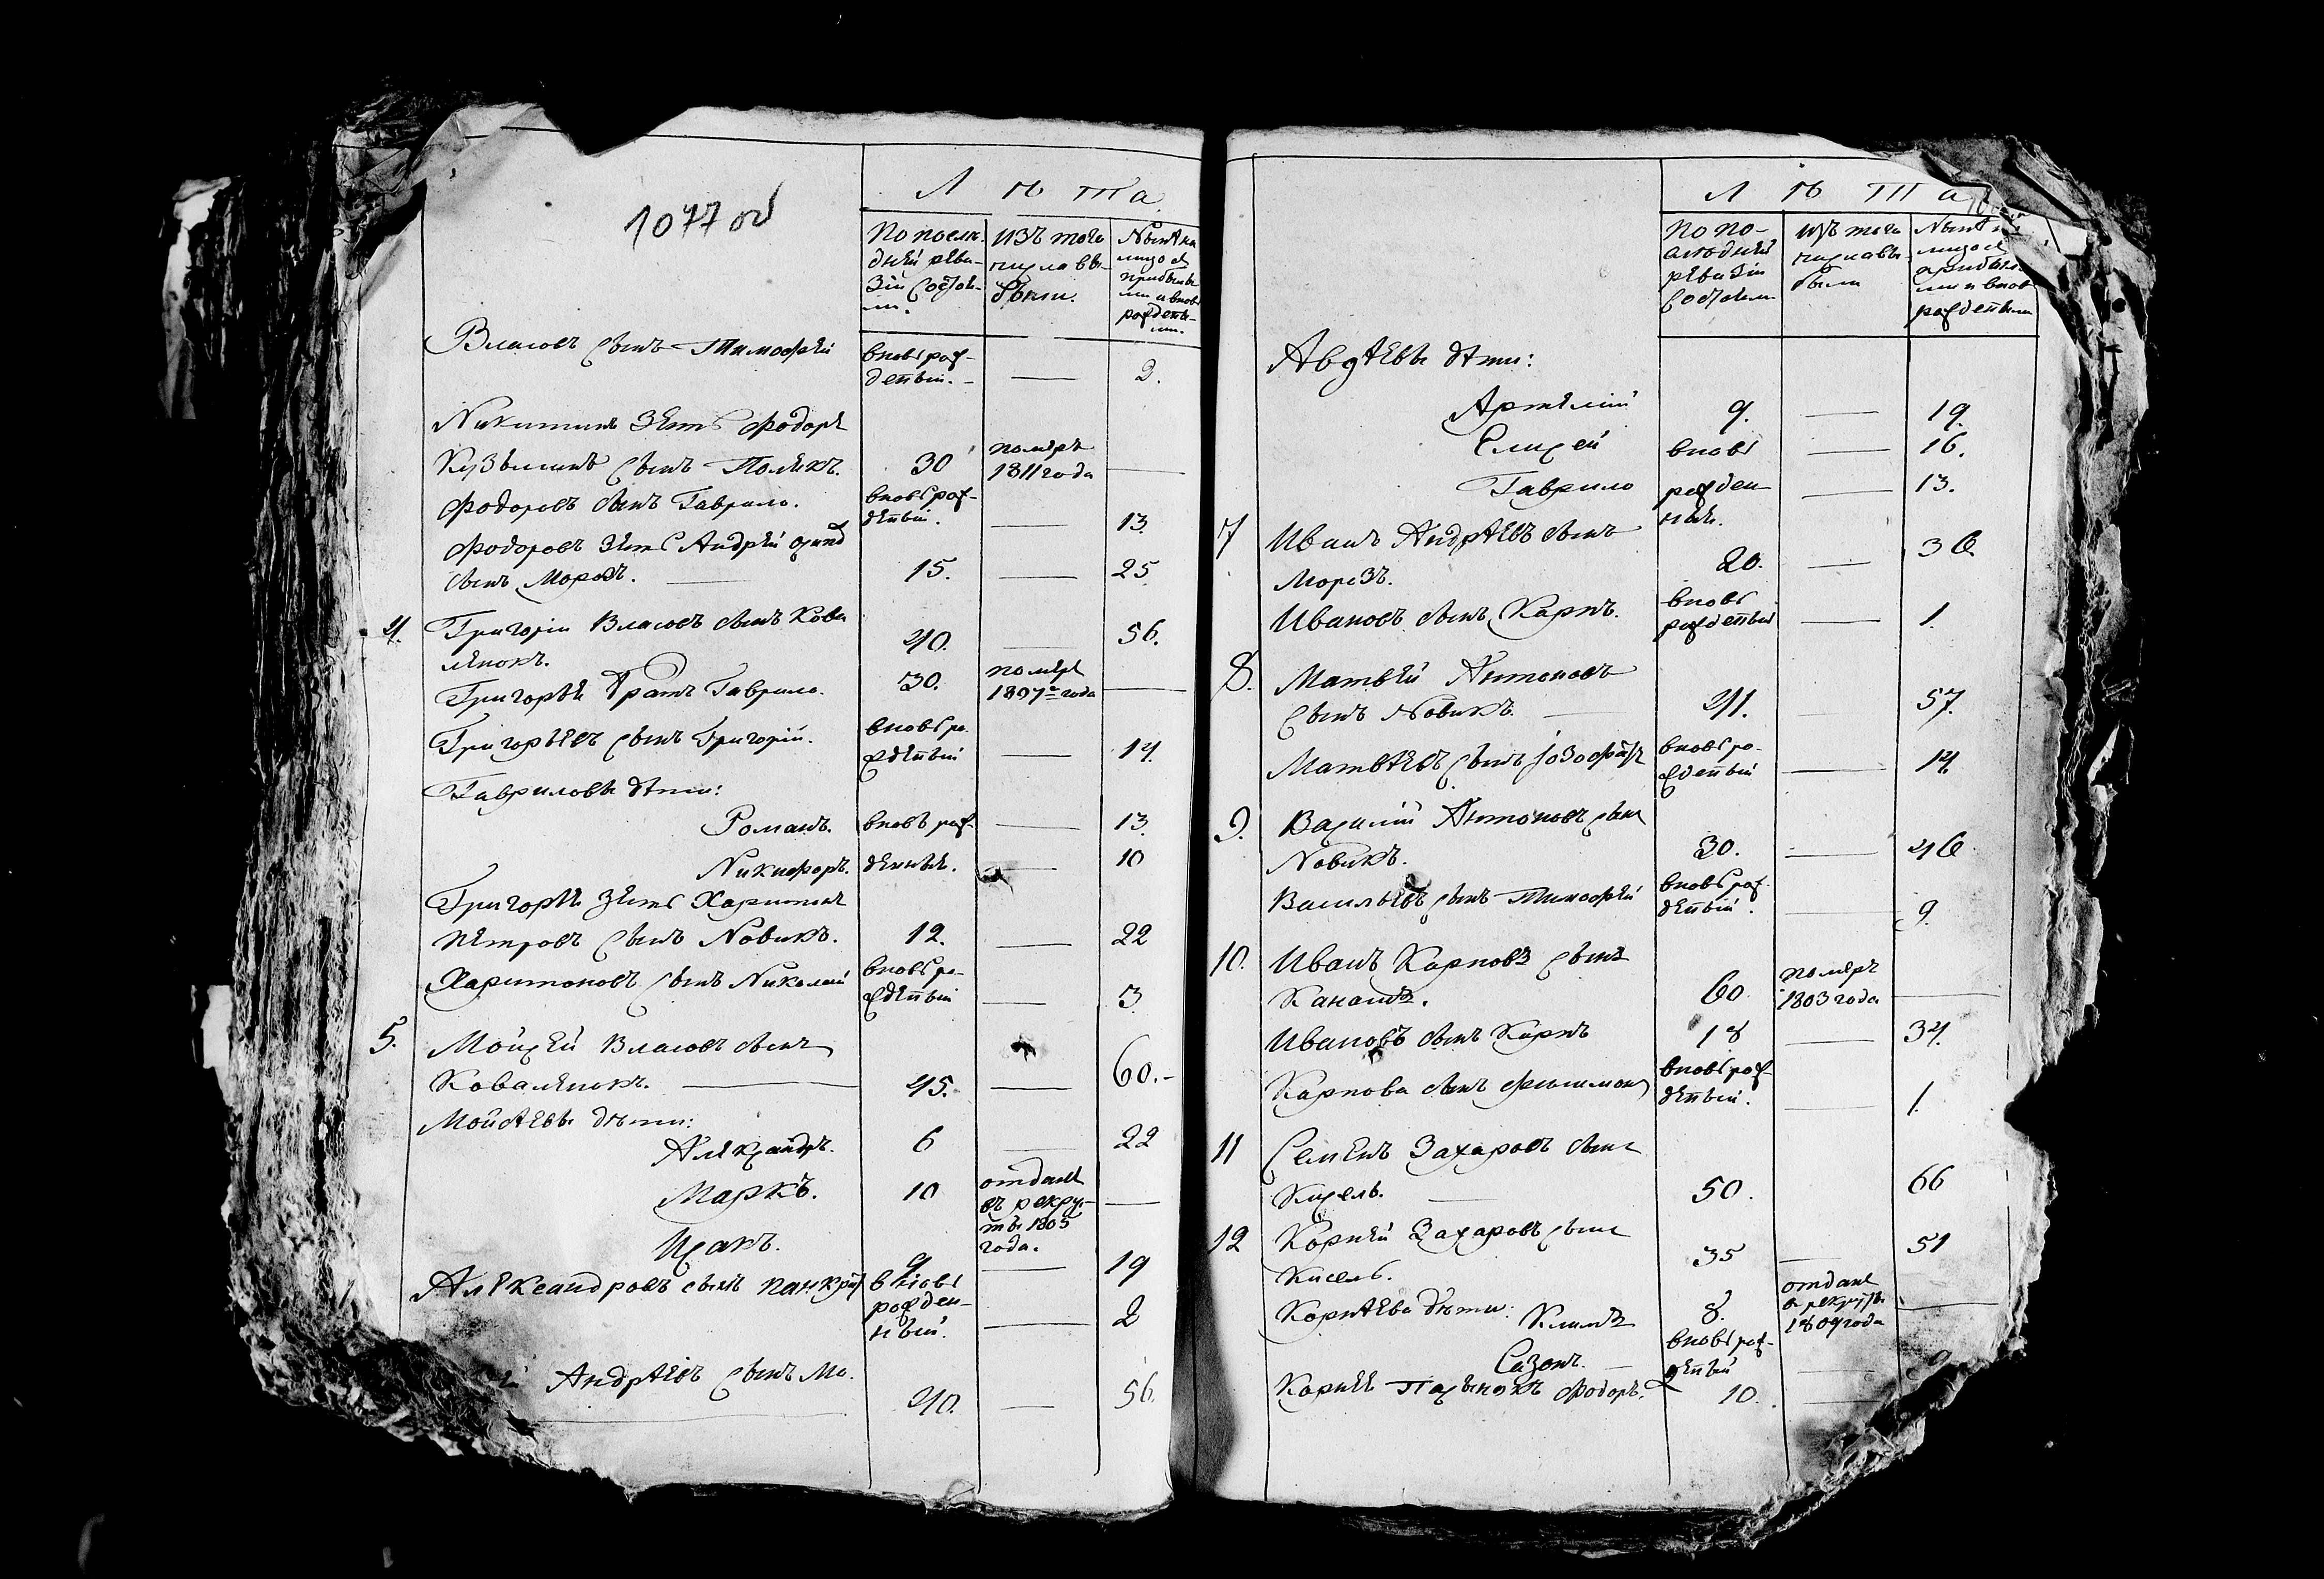 1077 об
Л ѣ та
По послѣ-
дней реви-
зіи состоя-
ли.
изъ того
числа вы-
были.
Нынѣ на
лицо съ
прибылы
ми и вновь
рожденны-
ми.
Власовъ сынъ Тимофей
вновь рож-
денный. — 2.
Никитинъ зять Фодоръ
Кузьминъ сынъ Полякъ. 30
померъ
1811 года
Фодоровъ сынъ Гаврило.
вновь рож-
денный. 13.
Фодоровъ зять Андрей
сынъ Морозъ. 15. — 25.
4. Григорій Власовъ сынъ Кова
ленокъ. 40. 56.
Григорья братъ Гаврило. 30.
померъ
1807го года
Григорьевъ сынъ Григорій.
вновь ро-
жденный — 14.
Гавриловы дѣти:
Романъ. вновь рож- — 13.
Никифоръ. денные. — 10
Григорья зять Харитонъ
Петровъ сынъ Новикъ. 12. — 22
Харитоновъ сынъ Николай
вновь ро-
жденный — 3
5. Мойсей Власовъ сынъ
Коваленокъ. 45. — 60.-
Мойсѣевы дѣти:
Александръ. 6 — 22
Маркъ. 10
отданъ
въ рекру-
ты 1805
года.
Исакъ. 9 — 19
Александровъ сынъ Панкрат
вновь
рожден-
ный. — 2
Андрѣевъ сынъ Мо.
40. — 56.
Л ѣ та
По по-
слѣдней
ревизіи
состояли
изъ того
числа вы-
были
Нынѣ на
лицо съ
прибылы
ми и вновь
рожденными
Авдѣевы дѣти:
Артемій 9. — 19.
Елисей вновь — 16.
Гаврило рожден- — 13.
ные.
7 Иванъ Андрѣевъ сынъ
Морозъ. 20. — 36
Ивановъ сынъ Карпъ.
вновь
рожденный — 1.
8. Матвѣй Антоновъ
сынъ Новикъ. — 41. 57.
Матвѣевъ сынъ
вновь ро-
жденный — 14.
9. Василий Антоновъ сынъ
Новикъ. 30. — 46
Васильевъ сынъ Тимофей
вновь рож-
денный. 9.
10. Иванъ Карповъ сынъ
Канашъ. 60
померъ
1803 года
Ивановъ сынъ Карпъ 18 — 34.
Карпова сынъ Филимонъ
вновь рож-
денный. — 1.
11 Семенъ Захаровъ сынъ
Кисель. 50. 66
12 Корней Захаровъ сынъ
Кисель. 35 — 51
Корнѣева дѣти: Климъ 8.
отданъ
въ рекруты
1809 года
Сазонъ. —
вновь рож-
денный — 9
Корнея Пасынокъ Фодоръ. 10. —